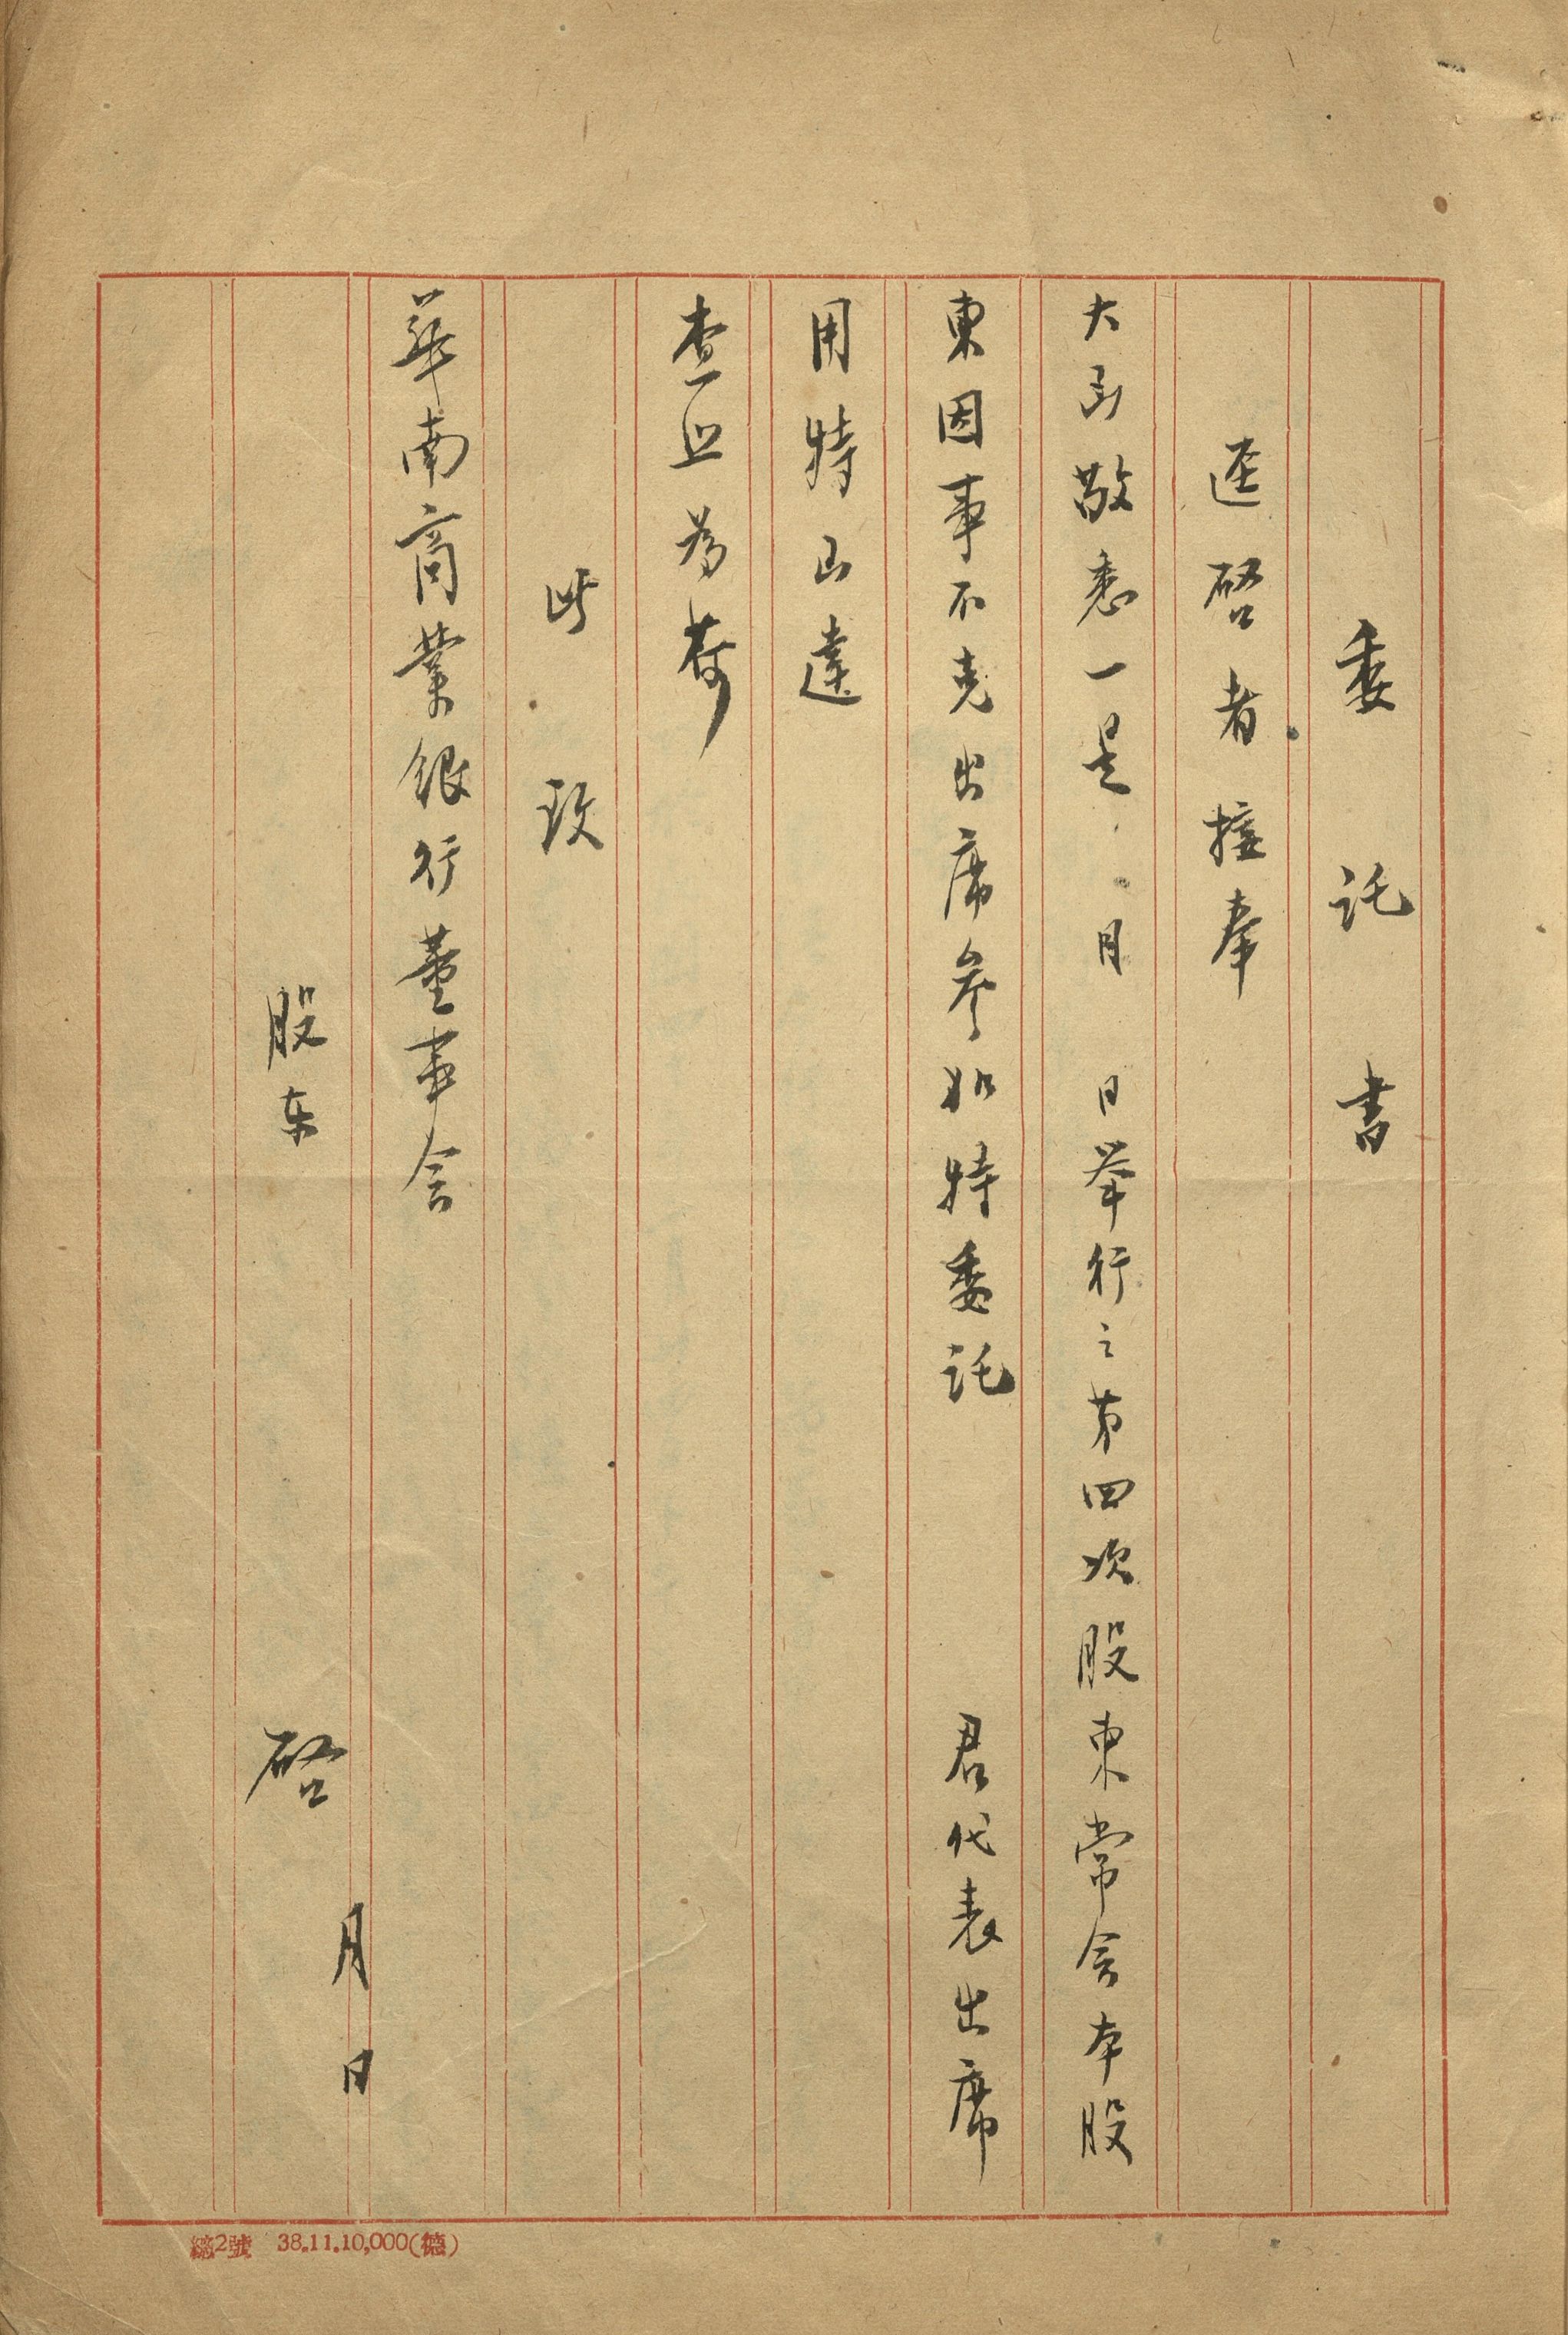 委託書
逕啓者接奉
大函敬悉一是 月 日举行之第四次股東常会本股
東因事不克出席参加特委託 君代表出席
用特函達
查照為荷
此致
華南商業銀行董事会
股东 啓
月 日
總2號 38.11.10,000(德)